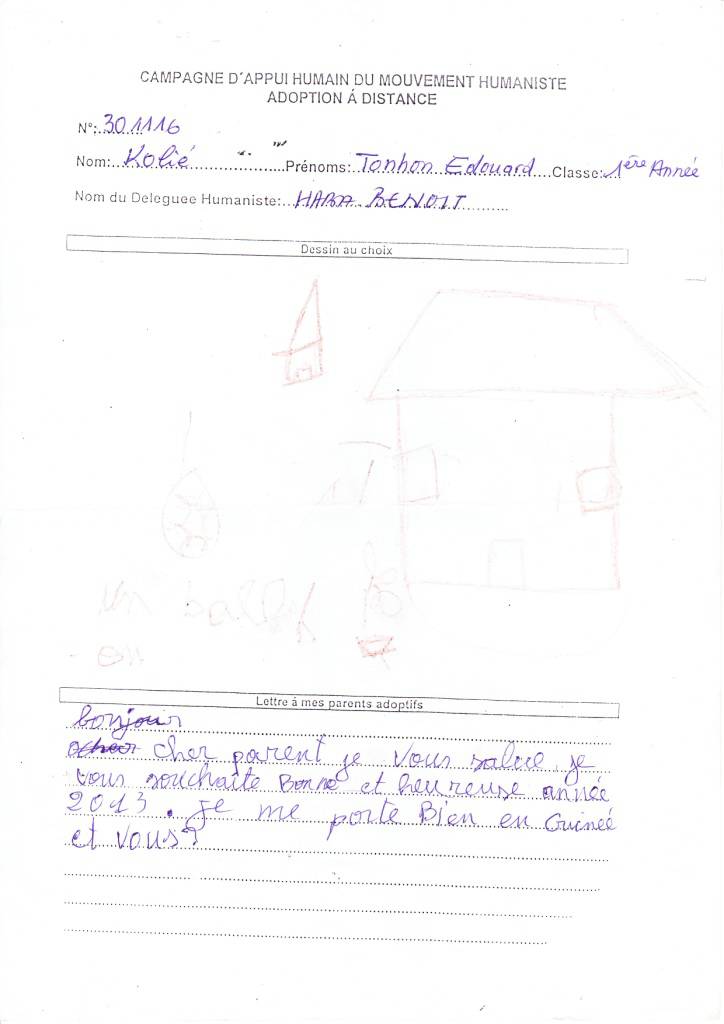 CAMPAGNE D´APPUI HUMAIN DU MOUVEMENT HUMANISTE
ADOPTION Á DISTANCE
N°:301116
Nom: Kolié Prénoms: Tonhon Edouard Classe: 1ère Année
Nom du Deleguee Humaniste: HABA BENOIT
Dessin au choix
un ballon
Lettre à mes parents adoptifs
bonjour
cher parent je vous salue je
vous souchaite Bonne et heureuse année
2013. Je me porte Bien en Guineé
et vous?